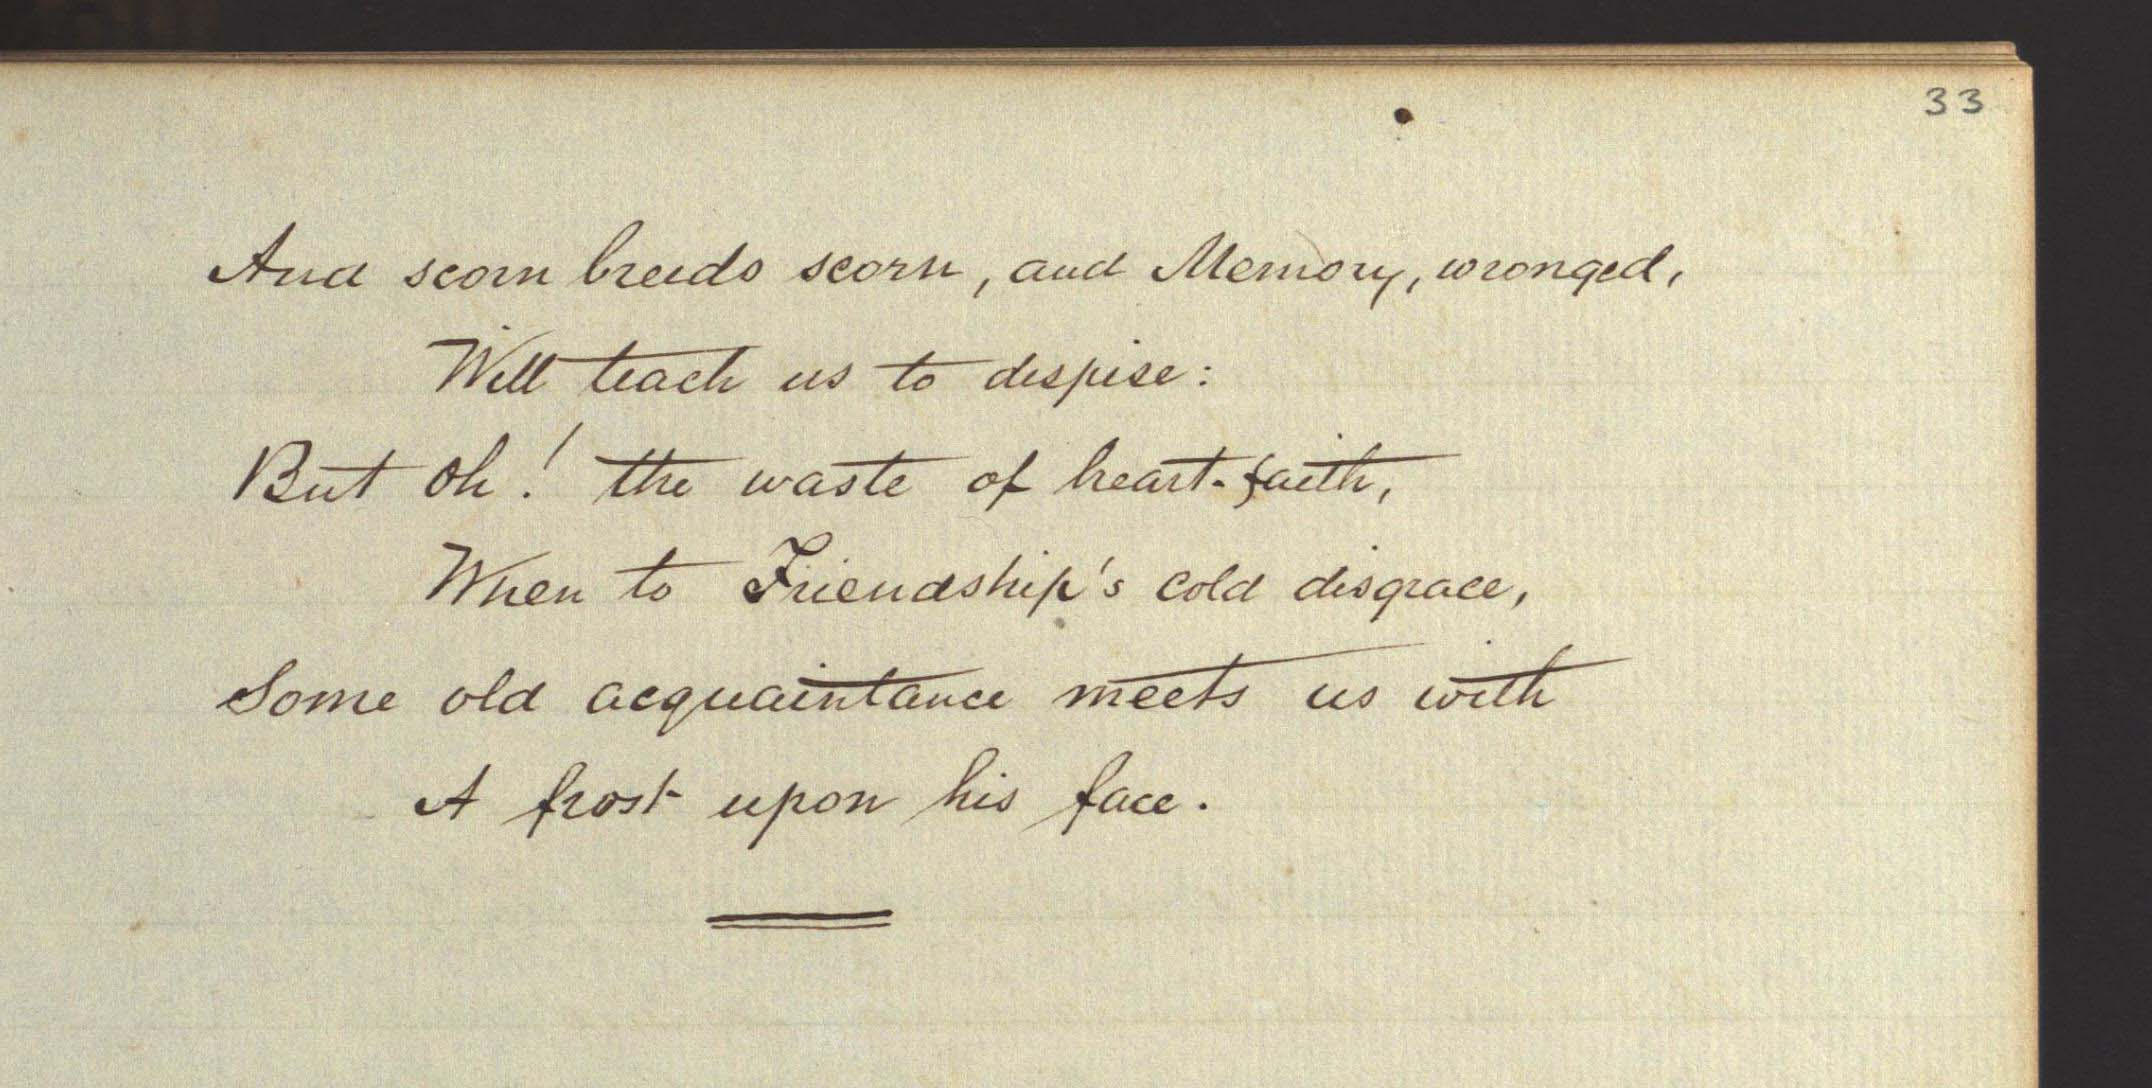 33
And scorn breeds scorn, and Memory, wronged,
Will teach us to despise:
But oh! the waste of heart-faith,
When to Friendship's cold disgrace,
Some old acquaintance meets us with
A frost upon his face.